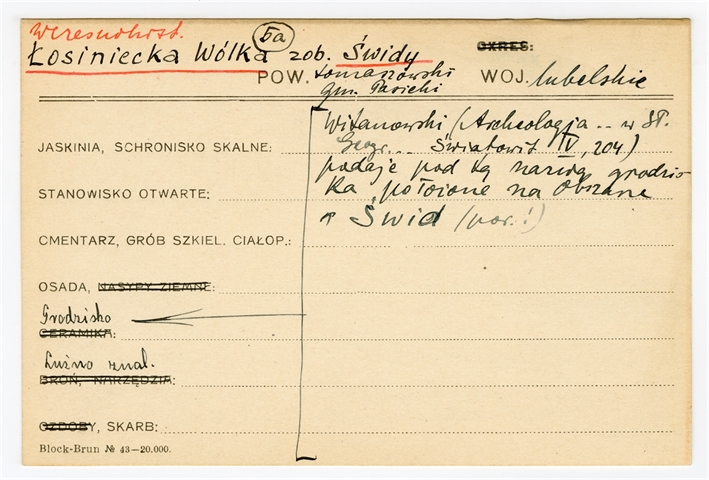 Wczesnohist.
Łosiniecka Wólka 5a zob. Świdy
OKRES:
POW. tomaszowski WOJ. lubelskie
gm. Pasieki
Witanowski (Archeologja .. w Sł.
Geogr... Światowit IV, 204)
podaje pod tą nazwą grodzis-
ka, położone na obszarze
Świd (por.!)
JASKINIA, SCHRONISKO SKALNE:
STANOWISKO OTWARTE:
CMENTARZ, GRÓB SZKIEL. CIAŁOP.:
OSADA, NASYPY ZIEMNE:
Grodzisko
CERAMIKA:
Luźno znal.
BROŃ, NARZĘDZIA:
OZDOBY, SKARB:
Block-Brun № 43—20.000.